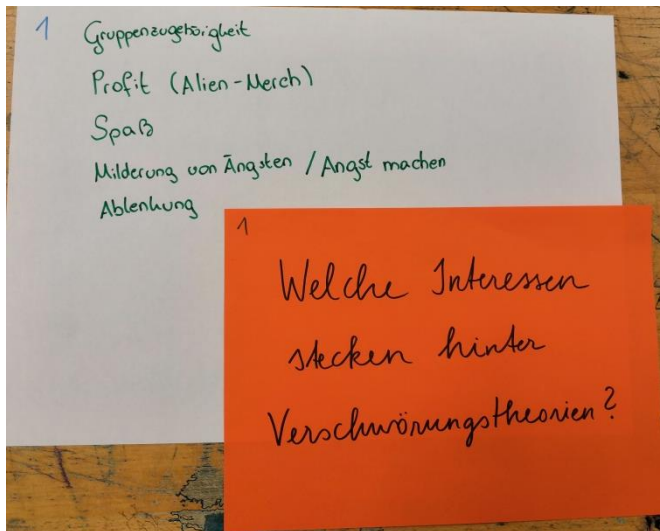 1
Gruppenzugehörigkeit
Profit (Alien-Merch)
Spaß
Milderung von Ängsten / Angst machen
Ablenkung
1
Welche Interessen
stecken hinter
Verschwörungstheorien?